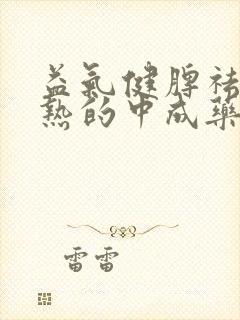 益氣健脾祛
熱的中成藥
雷雷